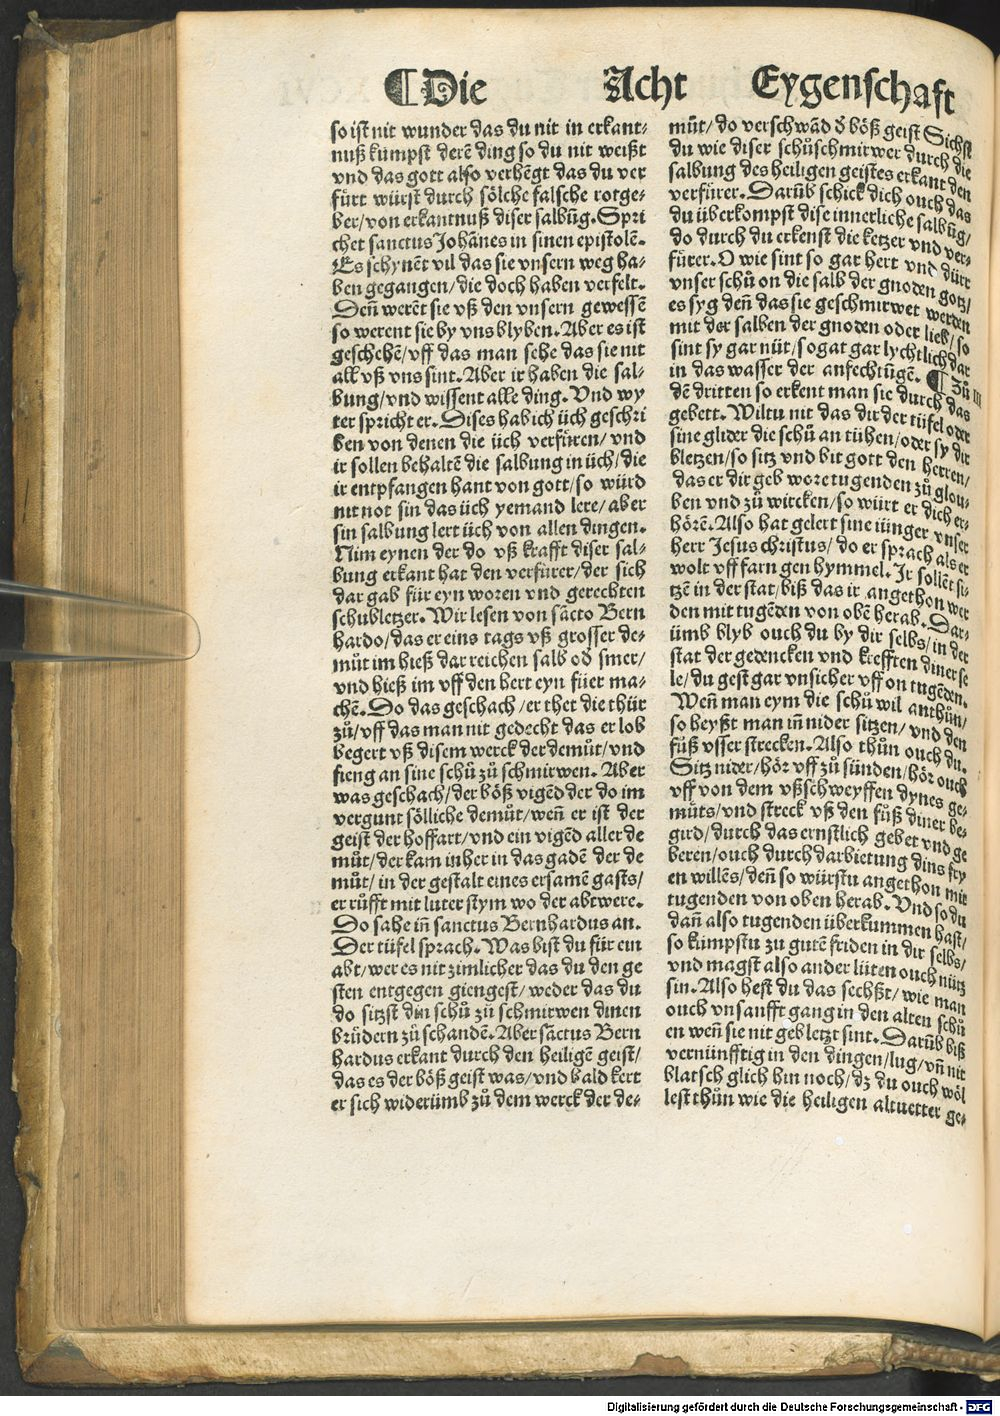 ¶ Die Acht Eygenschaft
so ist nit wunder das du nit in erkant⸗
nuß kumpst derē ding so du nit weißt
vnd das gott also verhēgt das du ver
fürt würst durch sölche falsche rotge⸗
ber/von erkantnuß diser salbūg. Spri
chet sanctus Johānes in sinen epistolē.
Es schynēt vil das sie vnsern weg ha⸗
ben gegangen/die doch haben verfelt.
Deñ werēt sie vß den vnsern gewessē
so werent sie by vns blyben. Aber es ist
geschehē/vff das man sehe das sie nit
all vß vns sint. Aber ir haben die sal⸗
bung/vnd wissent alle ding. Vnd wy
ter spricht er. Dises hab ich üch geschri
ben von denen die üch verfüren/vnd
ir sollen behaltē die salbung in üch/die
ir entpfangen hant von gott/so würd
nit not sin das üch yemand lere/aber
sin salbung lert üch von allen dingen.
Nim eynen der do vß krafft diser sal⸗
bung erkant hat den verfürer/der sich
dar gab für eyn woren vnd gerechten
schubletzer. Wir lesen von sācto Bern
hardo/das er eins tags vß grosser de⸗
můt im hieß dar reichen salb od smer/
vnd hieß im vff den hert eyn füer ma⸗
chē. Do das geschach/er thet die thür
zů/vff das man nit gedecht das er lob
begert vß disem werck der demůt/vnd
fieng an sine schů zů schmirwen. Aber
was geschach/der böß vigēd der do im
vergunt sölliche demůt/weñ er ist der
geist der hoffart/vnd ein vigēd aller de
můt/der kam in her in das gadē der de
můt/in der gestalt eines ersamē gasts/
er růfft mit luter stym wo der abt were.
Do sahe iñ sanctus Bernhardus an.
Der tüfel sprach. Was bist du für ein
abt/wer es nit zimlicher das du den ge
sten entgegen giengest/weder das du
do sitzst din schů zů schmirwen dinen
brüdern zů schandē. Aber sāctus Bern
hardus erkant durch den heiligē geist/
das es der böß geist was/vnd bald kert
er sich widerümb zů dem werck der de⸗
můt/do verschwād d̄ böß geist Sichst
du wie diser schůschmirwer durch die
salbung des heiligen geistes erkant den
verfürer. Darüb schick dich ouch das
du überkompst dise innerliche salbūg/
do durch du erkenst die ketzer vnd ver⸗
fürer. O wie sint so gar hert vnd dürr
vnser schů on die salb der gnoden gotz/
es syg deñ das sie geschmirwet werden
mit der salben der gnoden oder lieb/so
sint sy gar nüt/so gat gar lychtlich dar
in das wasser der anfechtūgē. ¶ Zů III
dē dritten so erkent man sie durch das
gebett. Wiltu nit das dir der tüfel oder
sine glider die schů an tühen/oder sy dir
bletzen/so sitz vnd bit gott den herren/
das er dir geb wore tugenden zů glou⸗
ben vnd zů wircken/so würt er dich er⸗
hörē. Also hat gelert sine iünger vnser
herr Jesus christus/do er sprach als er
wolt vff farn gen hymmel. Ir sollēt si⸗
tzē in der stat/biß das ir angethon wer
den mit tugēden von obē herab. Dar⸗
ümb blyb ouch du by dir selbs/in der
stat der gedencken vnd krefften diner se
le/du gest gar vnsicher vff on tugēden.
Weñ man eym die schů wil anthůn/
so heyßt man iñ nider sitzen/vnd den
fůß vsser strecken. Also thůn ouch du.
Sitz nider/hör vff zů sünden/hör ouch
vff von dem vßschweyffen dynes ge⸗
müts/vnd streck vß den fůß diner be⸗
gird/durch das ernstlich gebet vnd ge
beren/ouch durch darbietung dins fry
en willēs/deñ so würstu angethon mit
tugenden von oben herab. Vnd so du
dañ also tugenden überkummen hast/
so kümpstu zu gutē friden in dir selbs/
vnd magst also ander lüten ouch nütz
sin. Also hest du das sechßt/wie man
ouch vnsanfft gang in den alten schů
en weñ sie nit gebletzt sint. Darüb biß
vernünfftig in den dingen/lug/vñ nit
blatsch glich hin noch/dz du ouch wöl
lest thůn wie die heiligen altuetter ge⸗
Digitalisierung gefördert durch die Deutsche Forschungsgemeinschaft - DFG